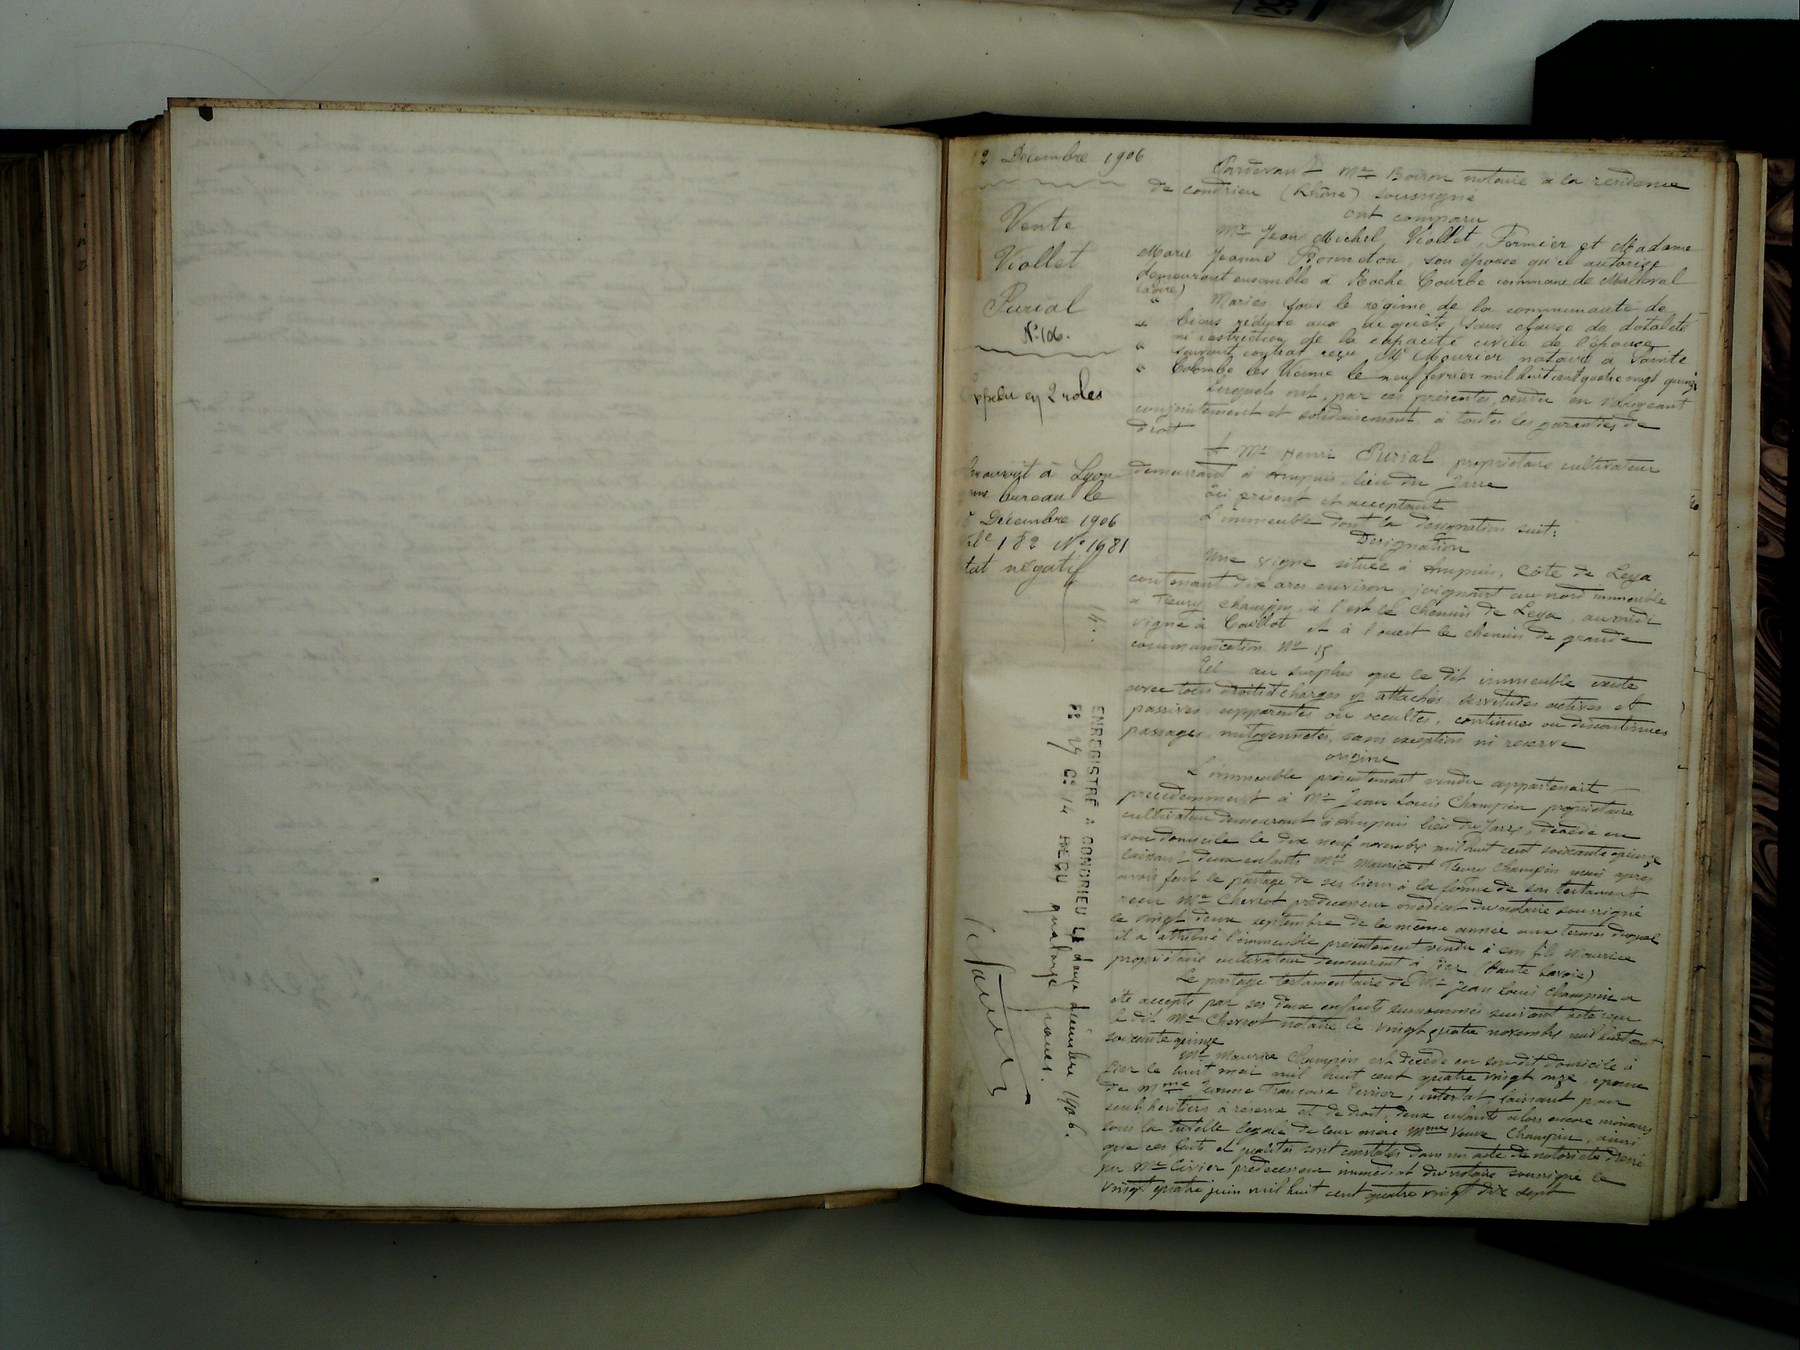 2 Décembre 1906
Vente
Viollet
Purial
N° 106.
en 2 roles
à Lyon
bureau le
Décembre 1906
Vol 182 N° 1681
négatif
14..
ENREGISTRÉ à CONDRIEU LE douze décembre 1906.
F° 29 C° 14 REÇU quatorze francs.
Pardevant Me Boiron notaire à la residence
de Condrieu (Rhône) soussigné
ont comparu
Mr Jean Michel Viollet, Fermier et Madame
Marie Jeanne Bonneton, son épouse qu'il autorise
demeurant ensemble à Roche Courbe commune de Malleval
(Loire)
" Mariés sous le régime de la communauté de
" biens réduite aux acquêts, sans clause de dotalité
" ni restriction de la capacité civile de l'épouse
" suivant contrat reçu Me Mourier notaire à Sainte
" Colombe les Vienne le neuf fevrier mil huit cent quatre vingt quinze
Lesquels ont, par ces présentes, vendu en s'obligeant
conjointement et solidairement à toutes les garanties de
droit
A Mr Henri Purial propriétaire cultivateur
demeurant à Ampuis lieu du Jarre
ici présent et acceptant
L'immeuble dont la designation suit:
Designation
Une vigne située à Ampuis, Côte de Leya
contenant dix ares environ, joignant au nord immeuble
a Fleury Champin, à l'est le chemin de Leya, au midi
vigne à Coullot et à l'ouest le chemin de grande
communication No 15
Tel au surplus que le dit immeuble existe
avec tous droits et charges y attachés, servitudes actives et
passives, apparentes ou occultes, continues ou discontinues
passages, mitoyennetés, sans exception ni reserve
origine
L'immeuble présentement vendu appartenait
precedemment à Mr Jean Louis Champin propriétaire
cultivateur demeurant à Ampuis lieu du Jarre, décédé en
son domicile le dix neuf novembre mil huit cent soixante quinze
laissant deux enfants Mrs Maurice et Fleury Champin mais après
avoir fait le partage de ses biens à la forme de son testament
reçu Me Chevrot prédécesseur médiat du notaire soussigné
le vingt deux septembre de la même année aux termes duquel
il a attribué l'immeuble présentement vendu à son fils Maurice
propriétaire cultivateur demeurant à Fier (Haute Savoie)
Le partage testamentaire de Mr Jean Louis Champin a
été accepté par ses deux enfants susnommés suivant acte reçu
le dit Me Chevrot notaire le vingt quatre novembre mil huit cent
soixante quinze
Mr Maurice Champin est décédé en son dit domicile à
Fier le huit mai mil huit cent quatre vingt onze, époux
de Mme Jeanne Françoise, intestat, laissant pour
seuls heritiers à réserve et de droit, deux enfants alors encore mineurs
sous la tutelle légale de leur mère Mme Veuve Champin, ainsi
que ces faits et qualités sont constatés dans un acte de notoriété dressé
par Me Civier predecesseur immédiat du notaire soussigné le
vingt quatre juin mil huit cent quatre vingt dix sept